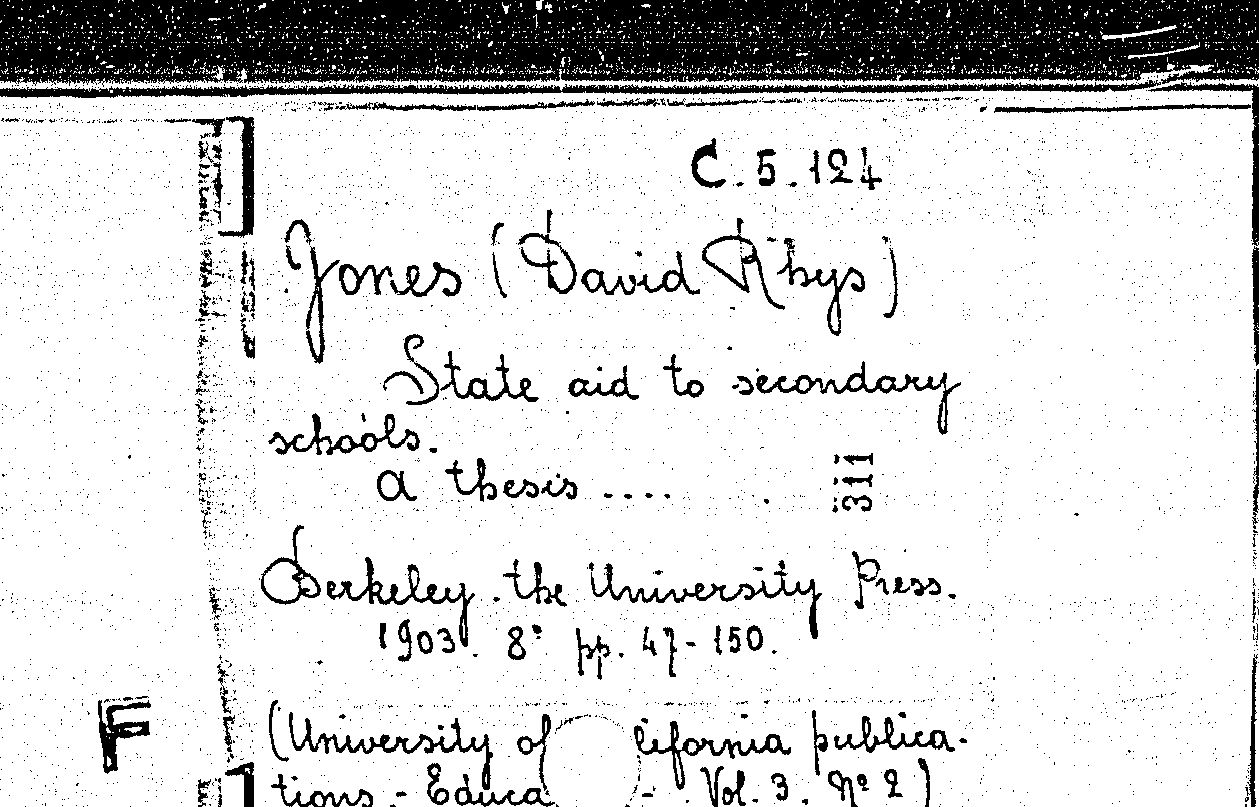 C.5.124
Jones (David Rhys)
State aid to secondary
schools.
A thesis ....
311
Berkeley. the University Press.
1903. 8° pp. 47-150.
F
(University of lifornia publica-
tions.- Educa - Vol. 3. Nº 2)